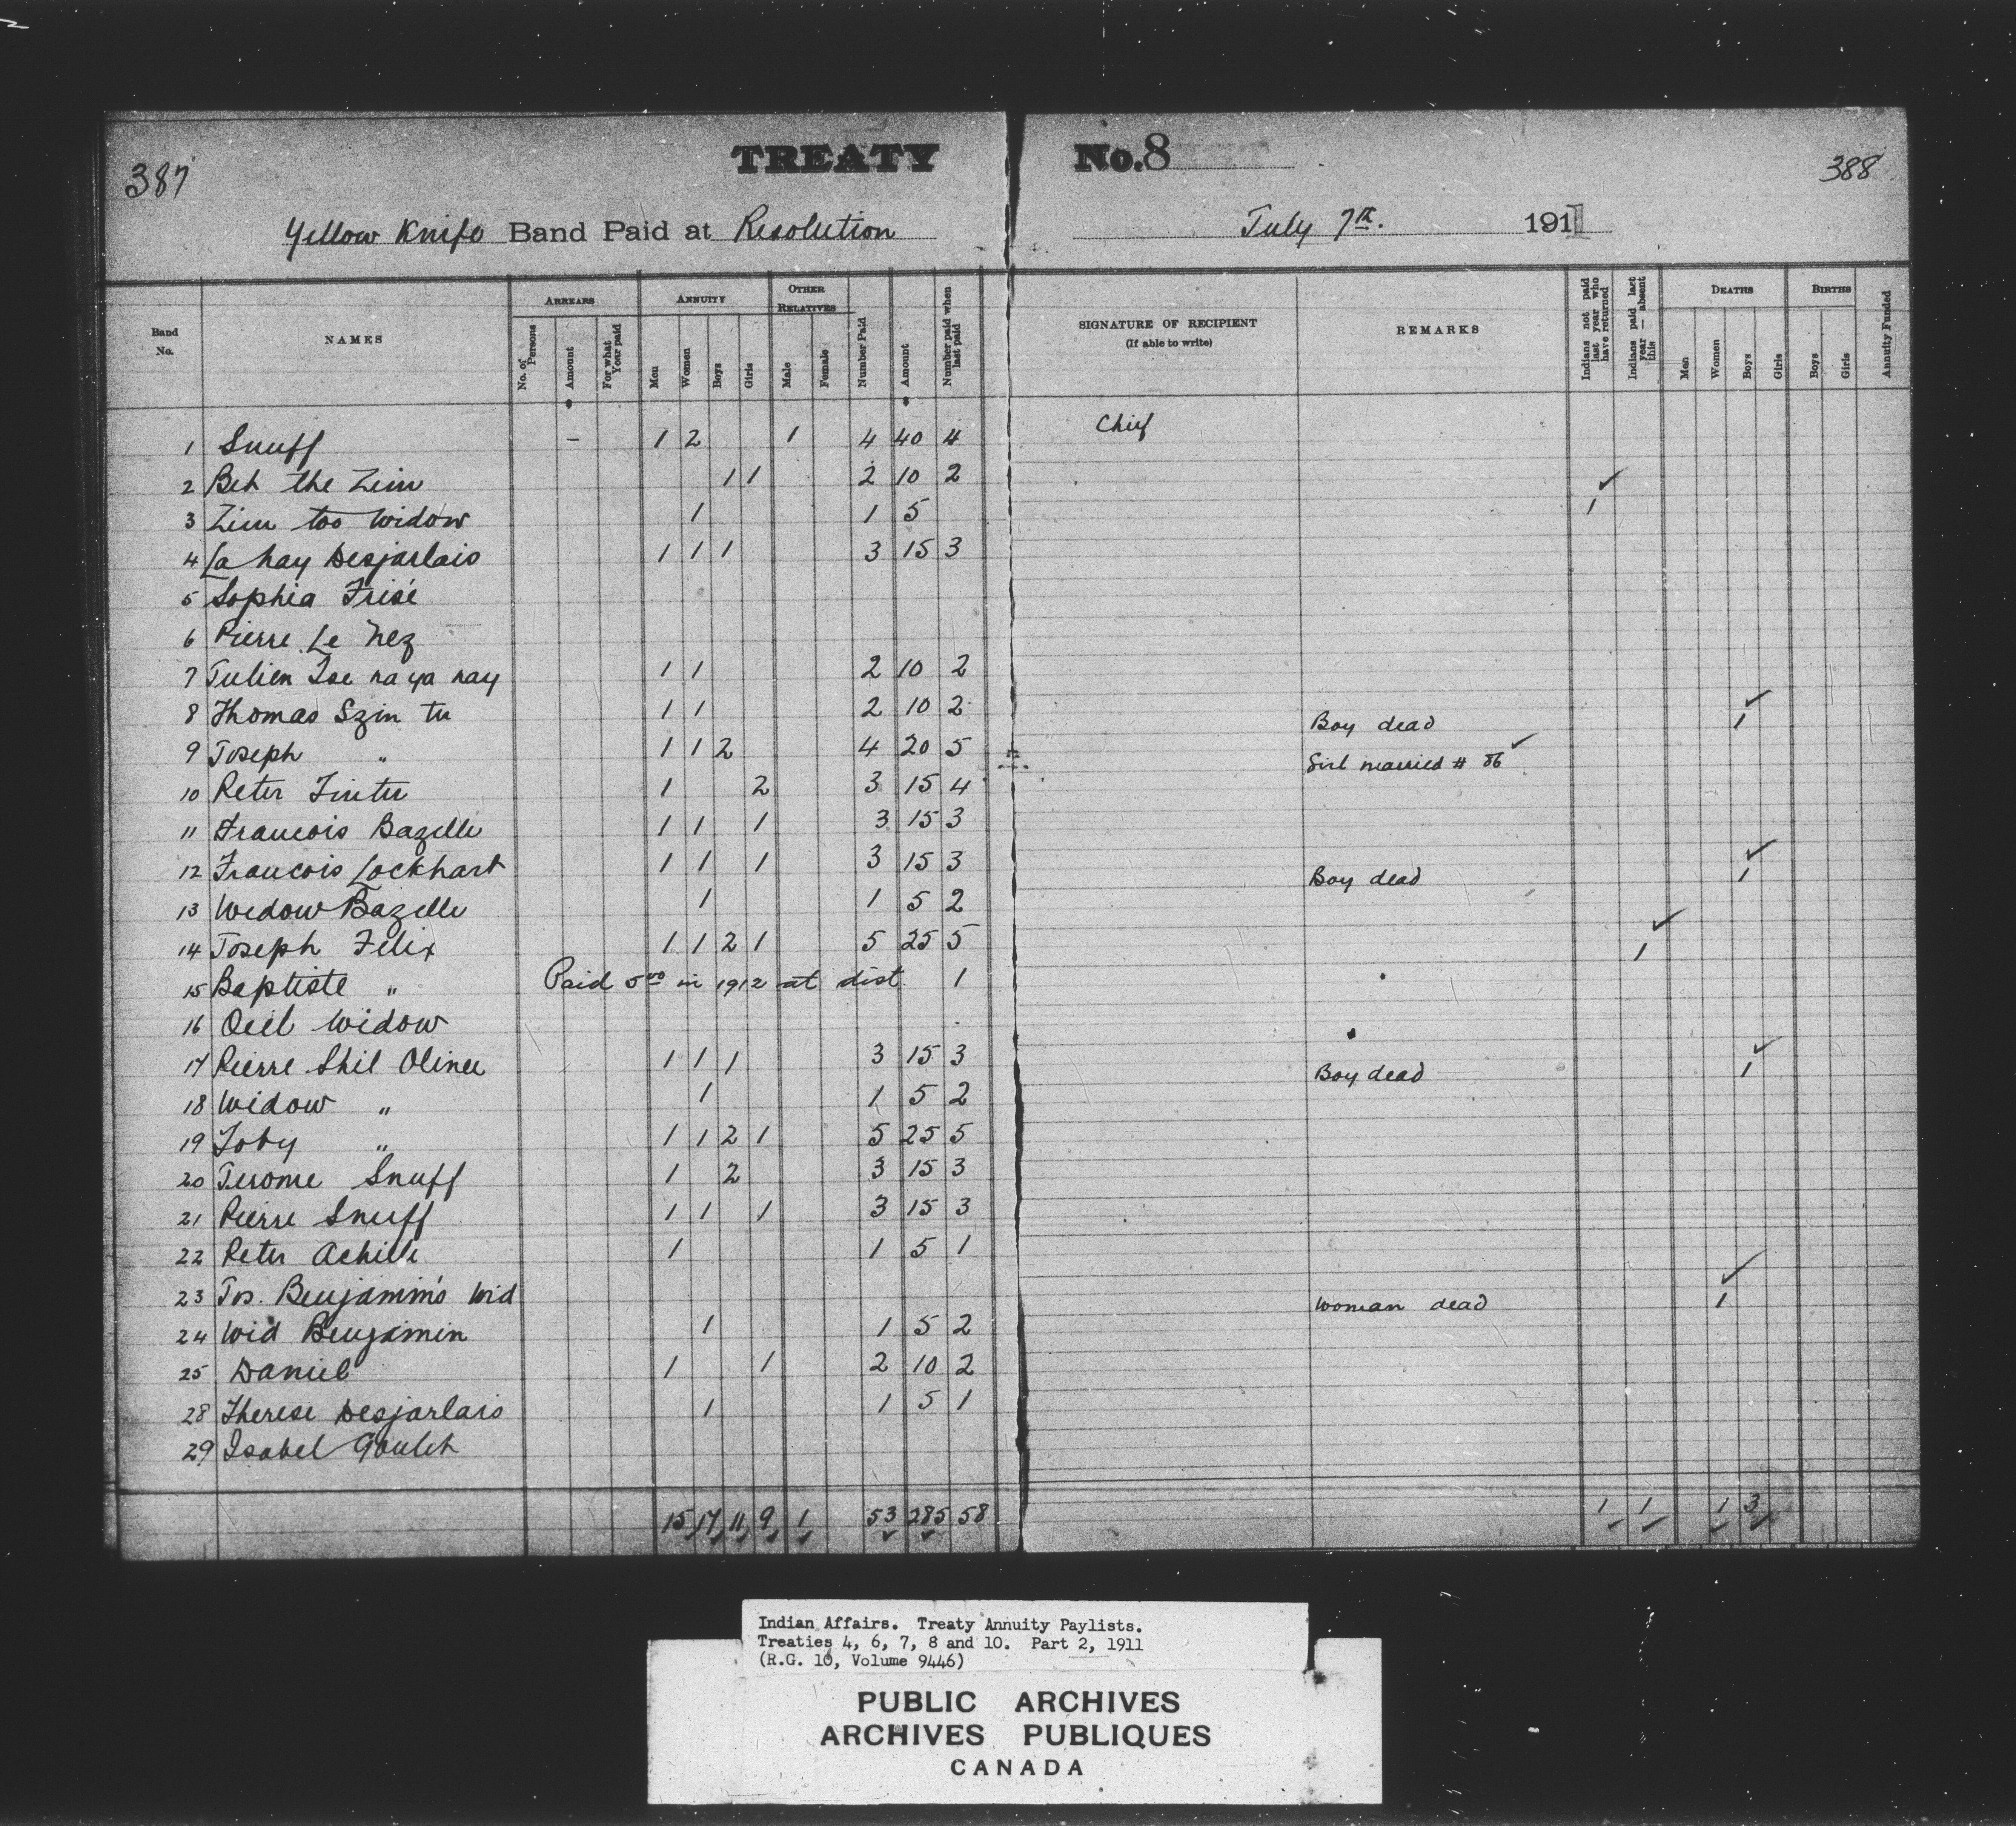 387
TREATY No. 8
388
Yellow Knife Band Paid at Resolution July 7th. 1911
Band No. NAMES ARREARS No. of Persons Amount For what Year paid ANNUITY Men Women Boys Girls OTHER RELATIVES Male Female Number Paid Amount Number paid when last paid SIGNATURE OF RECIPIENT (If able to write) REMARKS Indians not paid last year who have returned Indians paid last year — absent this DEATHS Men Women Boys Girls BIRTHS Boys Girls Annuity Funded
1 Snuff – 1 2 1 4 40 4 Chief
2 Beh the Zim 1 1 2 10 2
3 Zim too Widow 1 1 5 1 ✓
4 La hay Desjarlais 1 1 1 3 15 3
5 Sophia Frisé
6 Pierre Le Nez
7 Julien Tse na ya nay 1 1 2 10 2
8 Thomas Szin tu 1 1 2 10 2 Boy dead 1 ✓
9 Joseph " 1 1 2 4 20 5 Girl married # 86 ✓
10 Peter 1 2 3 15 4
11 Francois Bazelle 1 1 1 3 15 3
12 Francois Lockhart 1 1 1 3 15 3 Boy dead 1 ✓
13 Widow Bazelle 1 1 5 2
14 Joseph Felix 1 1 2 1 5 25 5 1 ✓
15 Baptiste " Paid 5 00 in 1912 at dist. 1
16 Widow
17 Pierre Shil 1 1 1 3 15 3 Boy dead 1 ✓
18 Widow " 1 1 5 2
19 Toby " 1 1 2 1 5 25 5
20 Jerome Snuff 1 2 3 15 3
21 Pierre Snuff 1 1 1 3 15 3
22 Peter Achille 1 1 5 1
23 Jos. Benjamin's Wid Woman dead 1 ✓
24 Wid Benjamin 1 1 5 2
25 Daniel 1 1 2 10 2
28 Therese Desjarlais 1 1 5 1
29 Isabel
15 17 11 9 1 53 285 58 1 1 1 3
Indian Affairs. Treaty Annuity Paylists.
Treaties 4, 6, 7, 8 and 10. Part 2, 1911
(R.G. 10, Volume 9446)
PUBLIC ARCHIVES
ARCHIVES PUBLIQUES
CANADA